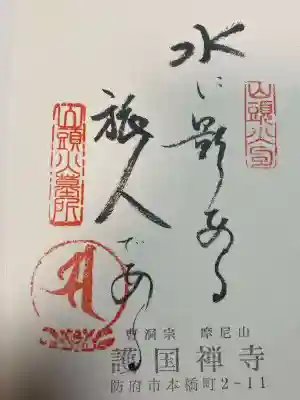 水に影ある
旅人である
山頭火句
山頭火墓所
曹洞宗 摩尼山
護国禅寺
防府市本橋町2-11